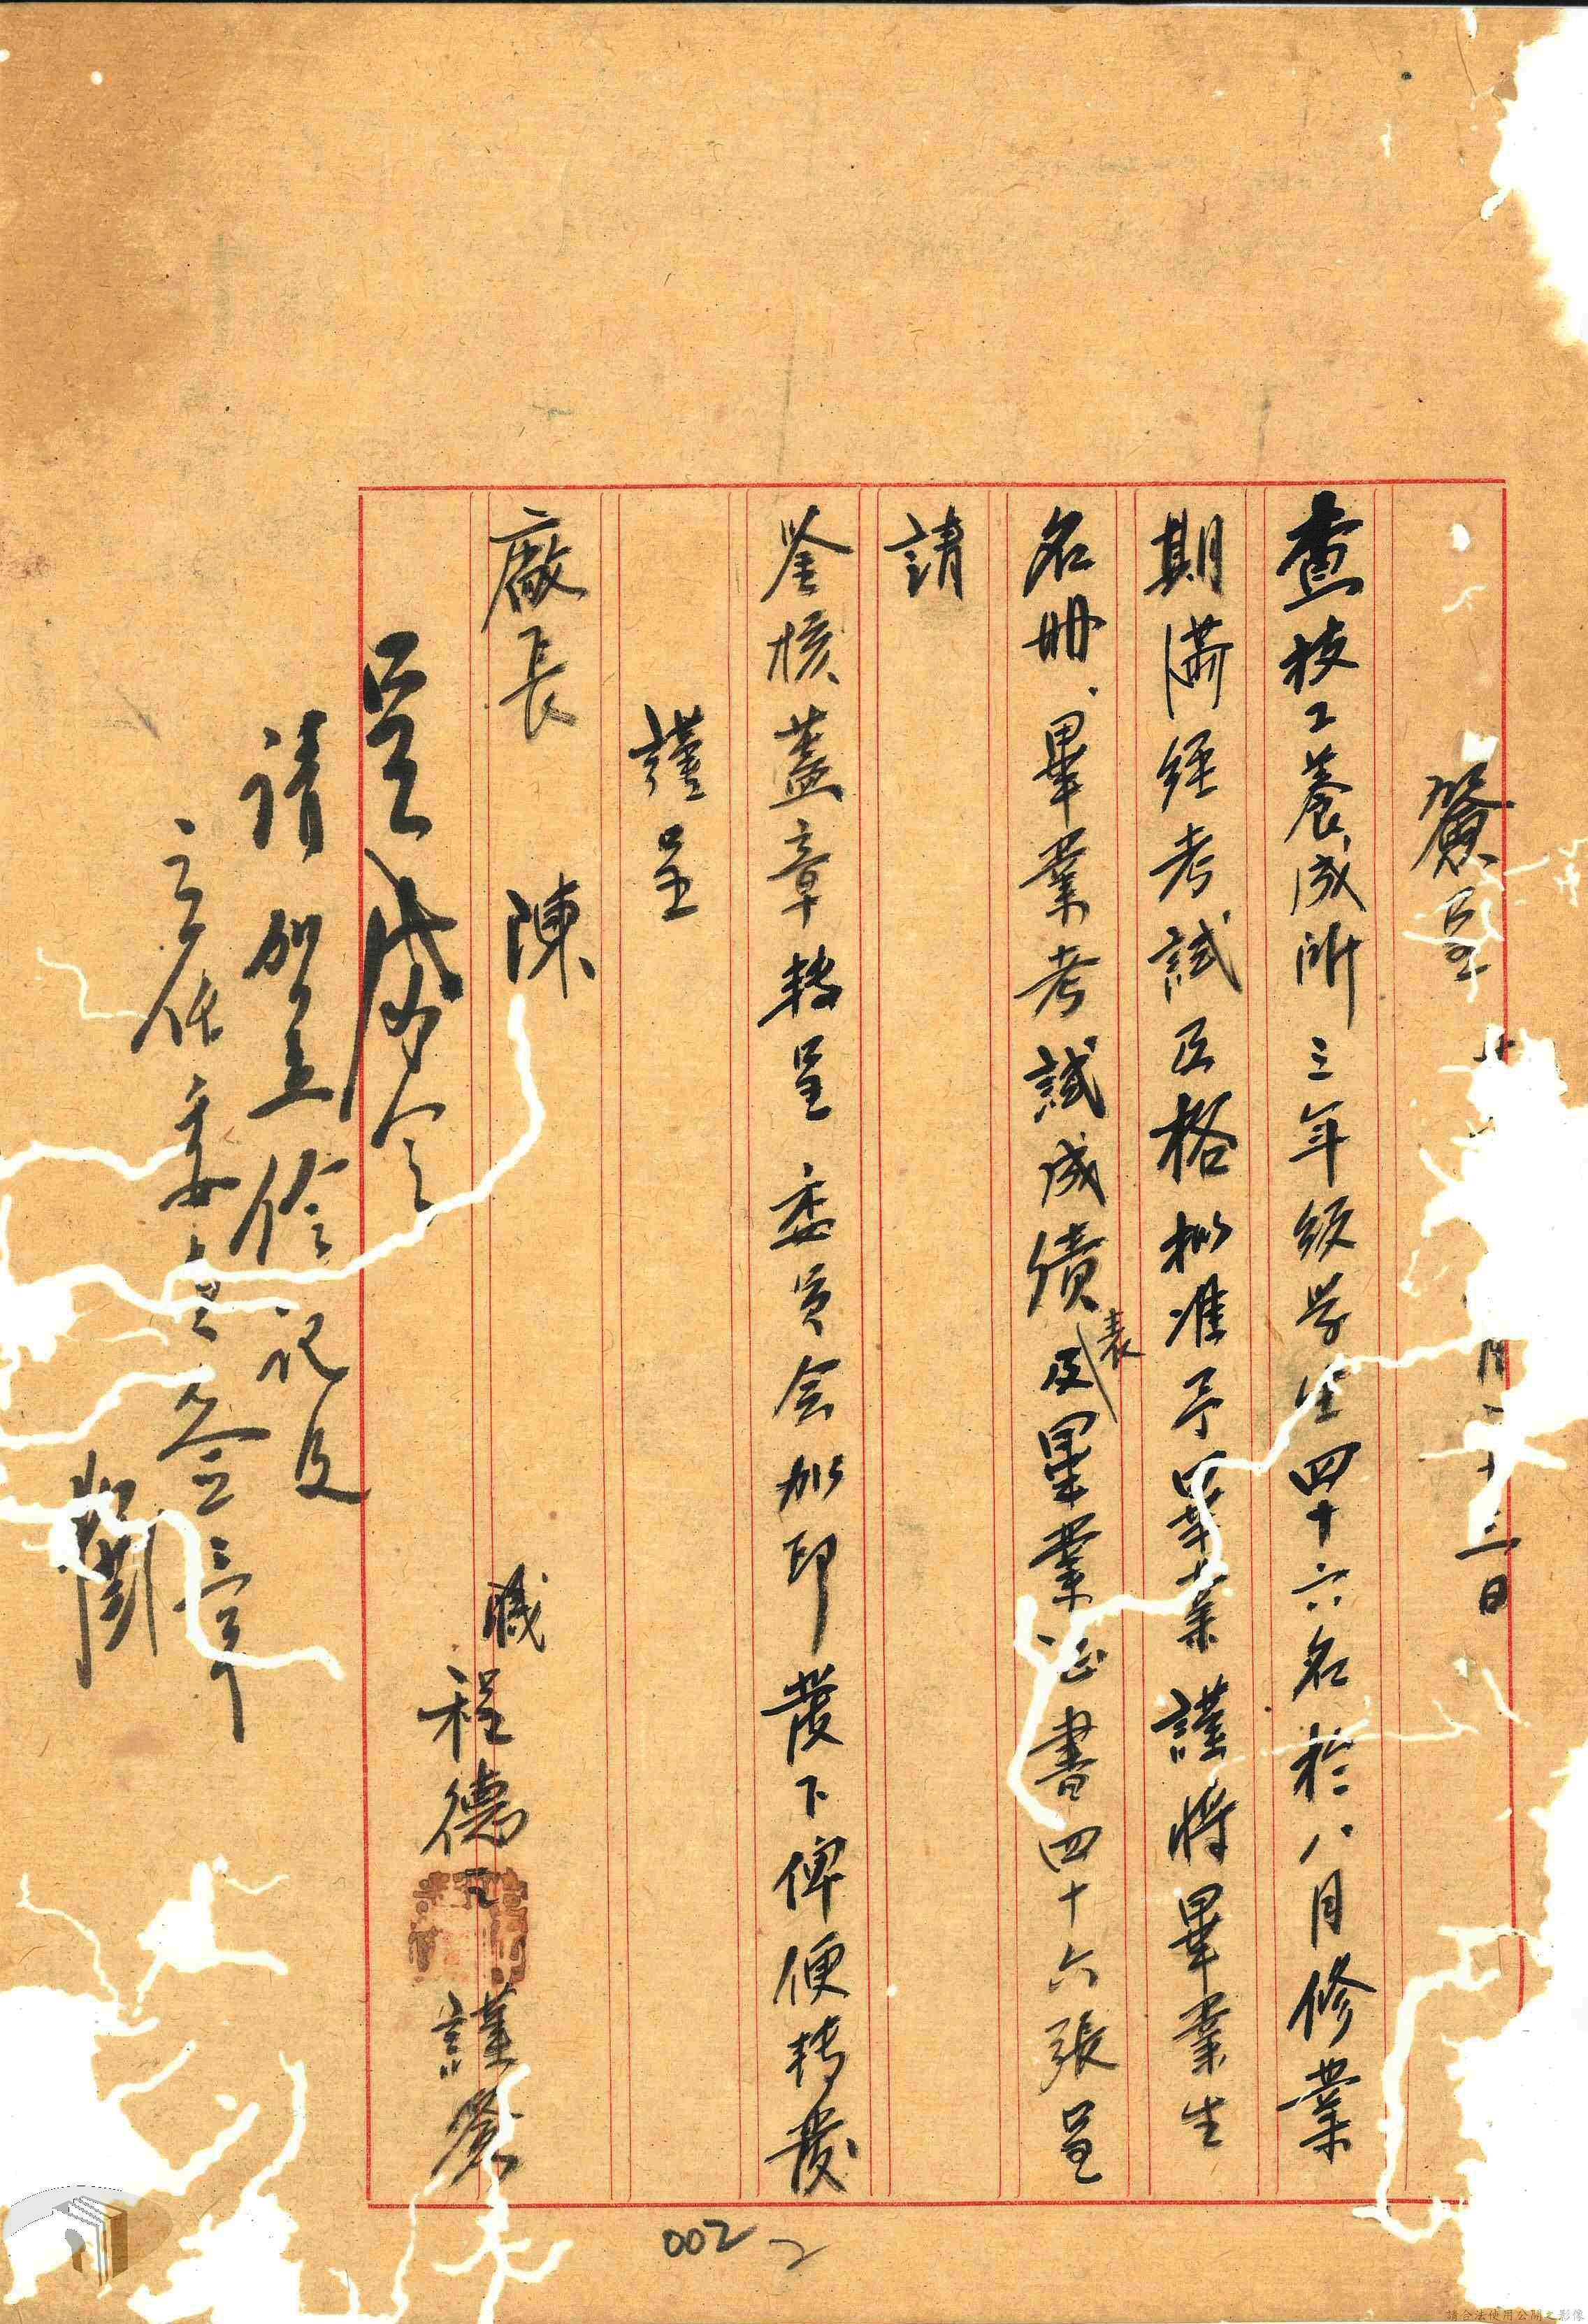 簽呈 月二十三日
查技工養成所三年級学生四十六名於八月修業
期满經考試及格拟准予畢業謹将畢業生
名册、畢業考試成績表及畢業证書四十六張呈
請
鉴核蓋章轉呈 委員会加印發下俾便轉發
謹呈
廠長 陳
職 程德 謹簽
呈
請加盖 及
主任委員签章
002
請合法使用公開之影像